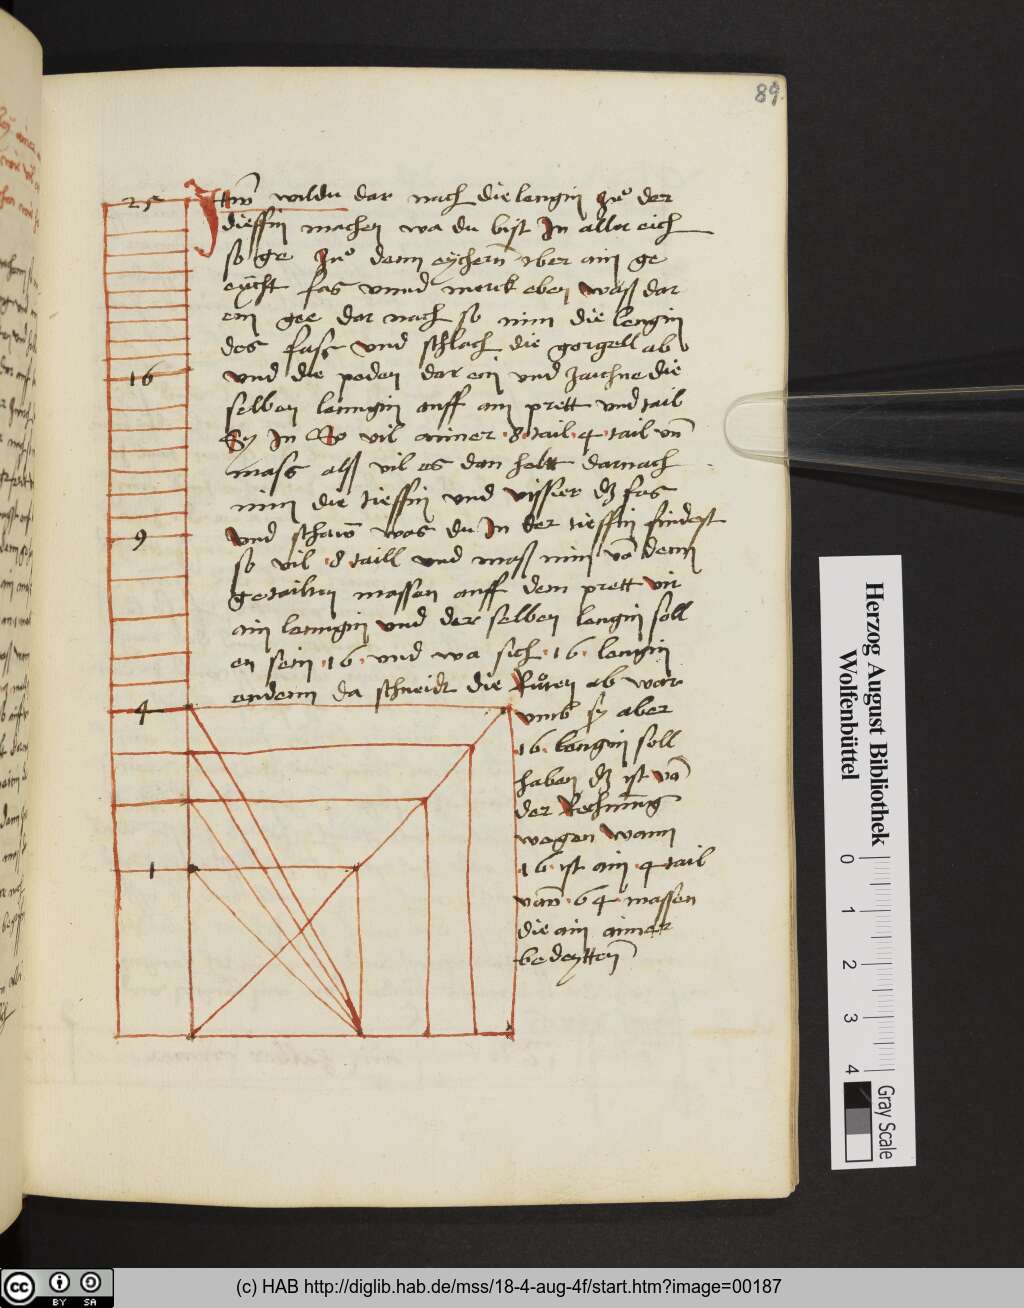 89
25
Item wildu dar nach die lengin zuo der
dieffin machen wa du bist In aller eich
so ge zuo denn eychern iber ain ge
eycht fas vnnd merck eben waß dar
ein gee dar nach so nim die lengin
des fass vnd schlach die gorgell ab
16
vnd die poden dar ein vnd zaichne die
selben lenngin auff ain prett vnd tail
Sy In So vil aimer 8 tail 4 tail vn
mass alß vil es dan helt darnach
nim die tieffin vnd vissier dz fas
9
vnd schaw was du In der tieffin findest
so vil 8 taill vnd maß nim von denn
getailten massen auff dem prett vir
ain lenngin vnd der selben lengin soll
en sein 16 vnd wa sich 16 lengin
endenn da schneide die Ruoten ab war
4
vmb sy aber
16 lengin soll
haben dz ist von
der Rechnung
wegen wann
1
16 ist ain 4 tail
vann 64 massen
die ain aimer
bedeytten
Herzog August Bibliothek
Wolfenbüttel
0 1 2 3 4
Gray Scale
cc BY SA
(c) HAB http://diglib.hab.de/mss/18-4-aug-4f/start.htm?image=00187